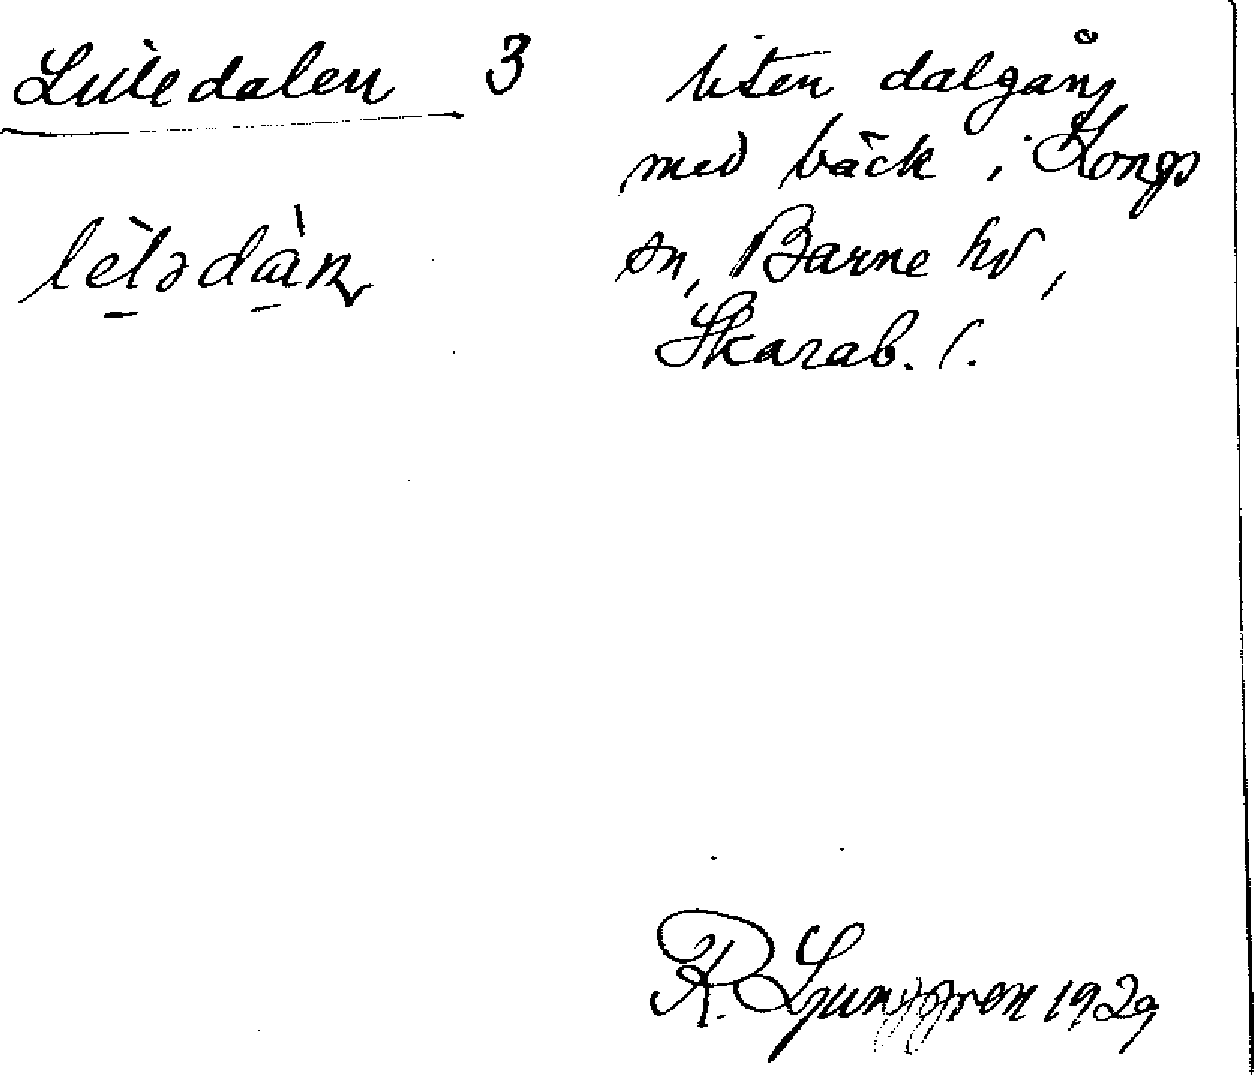 Liledalen 3
lèlədàn
liten dalgång
med bäck i Longs
sn, Barne hd,
Skarab. l.
R. Ljunggren 1929